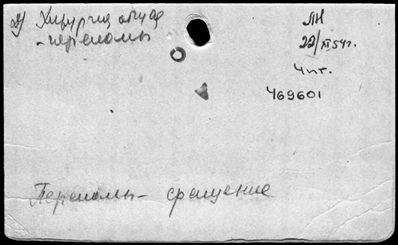 2) Хирургия общая
- переломы
ЛН
22/XI 54 г.
4 пг.
469601
Переломы - сращение